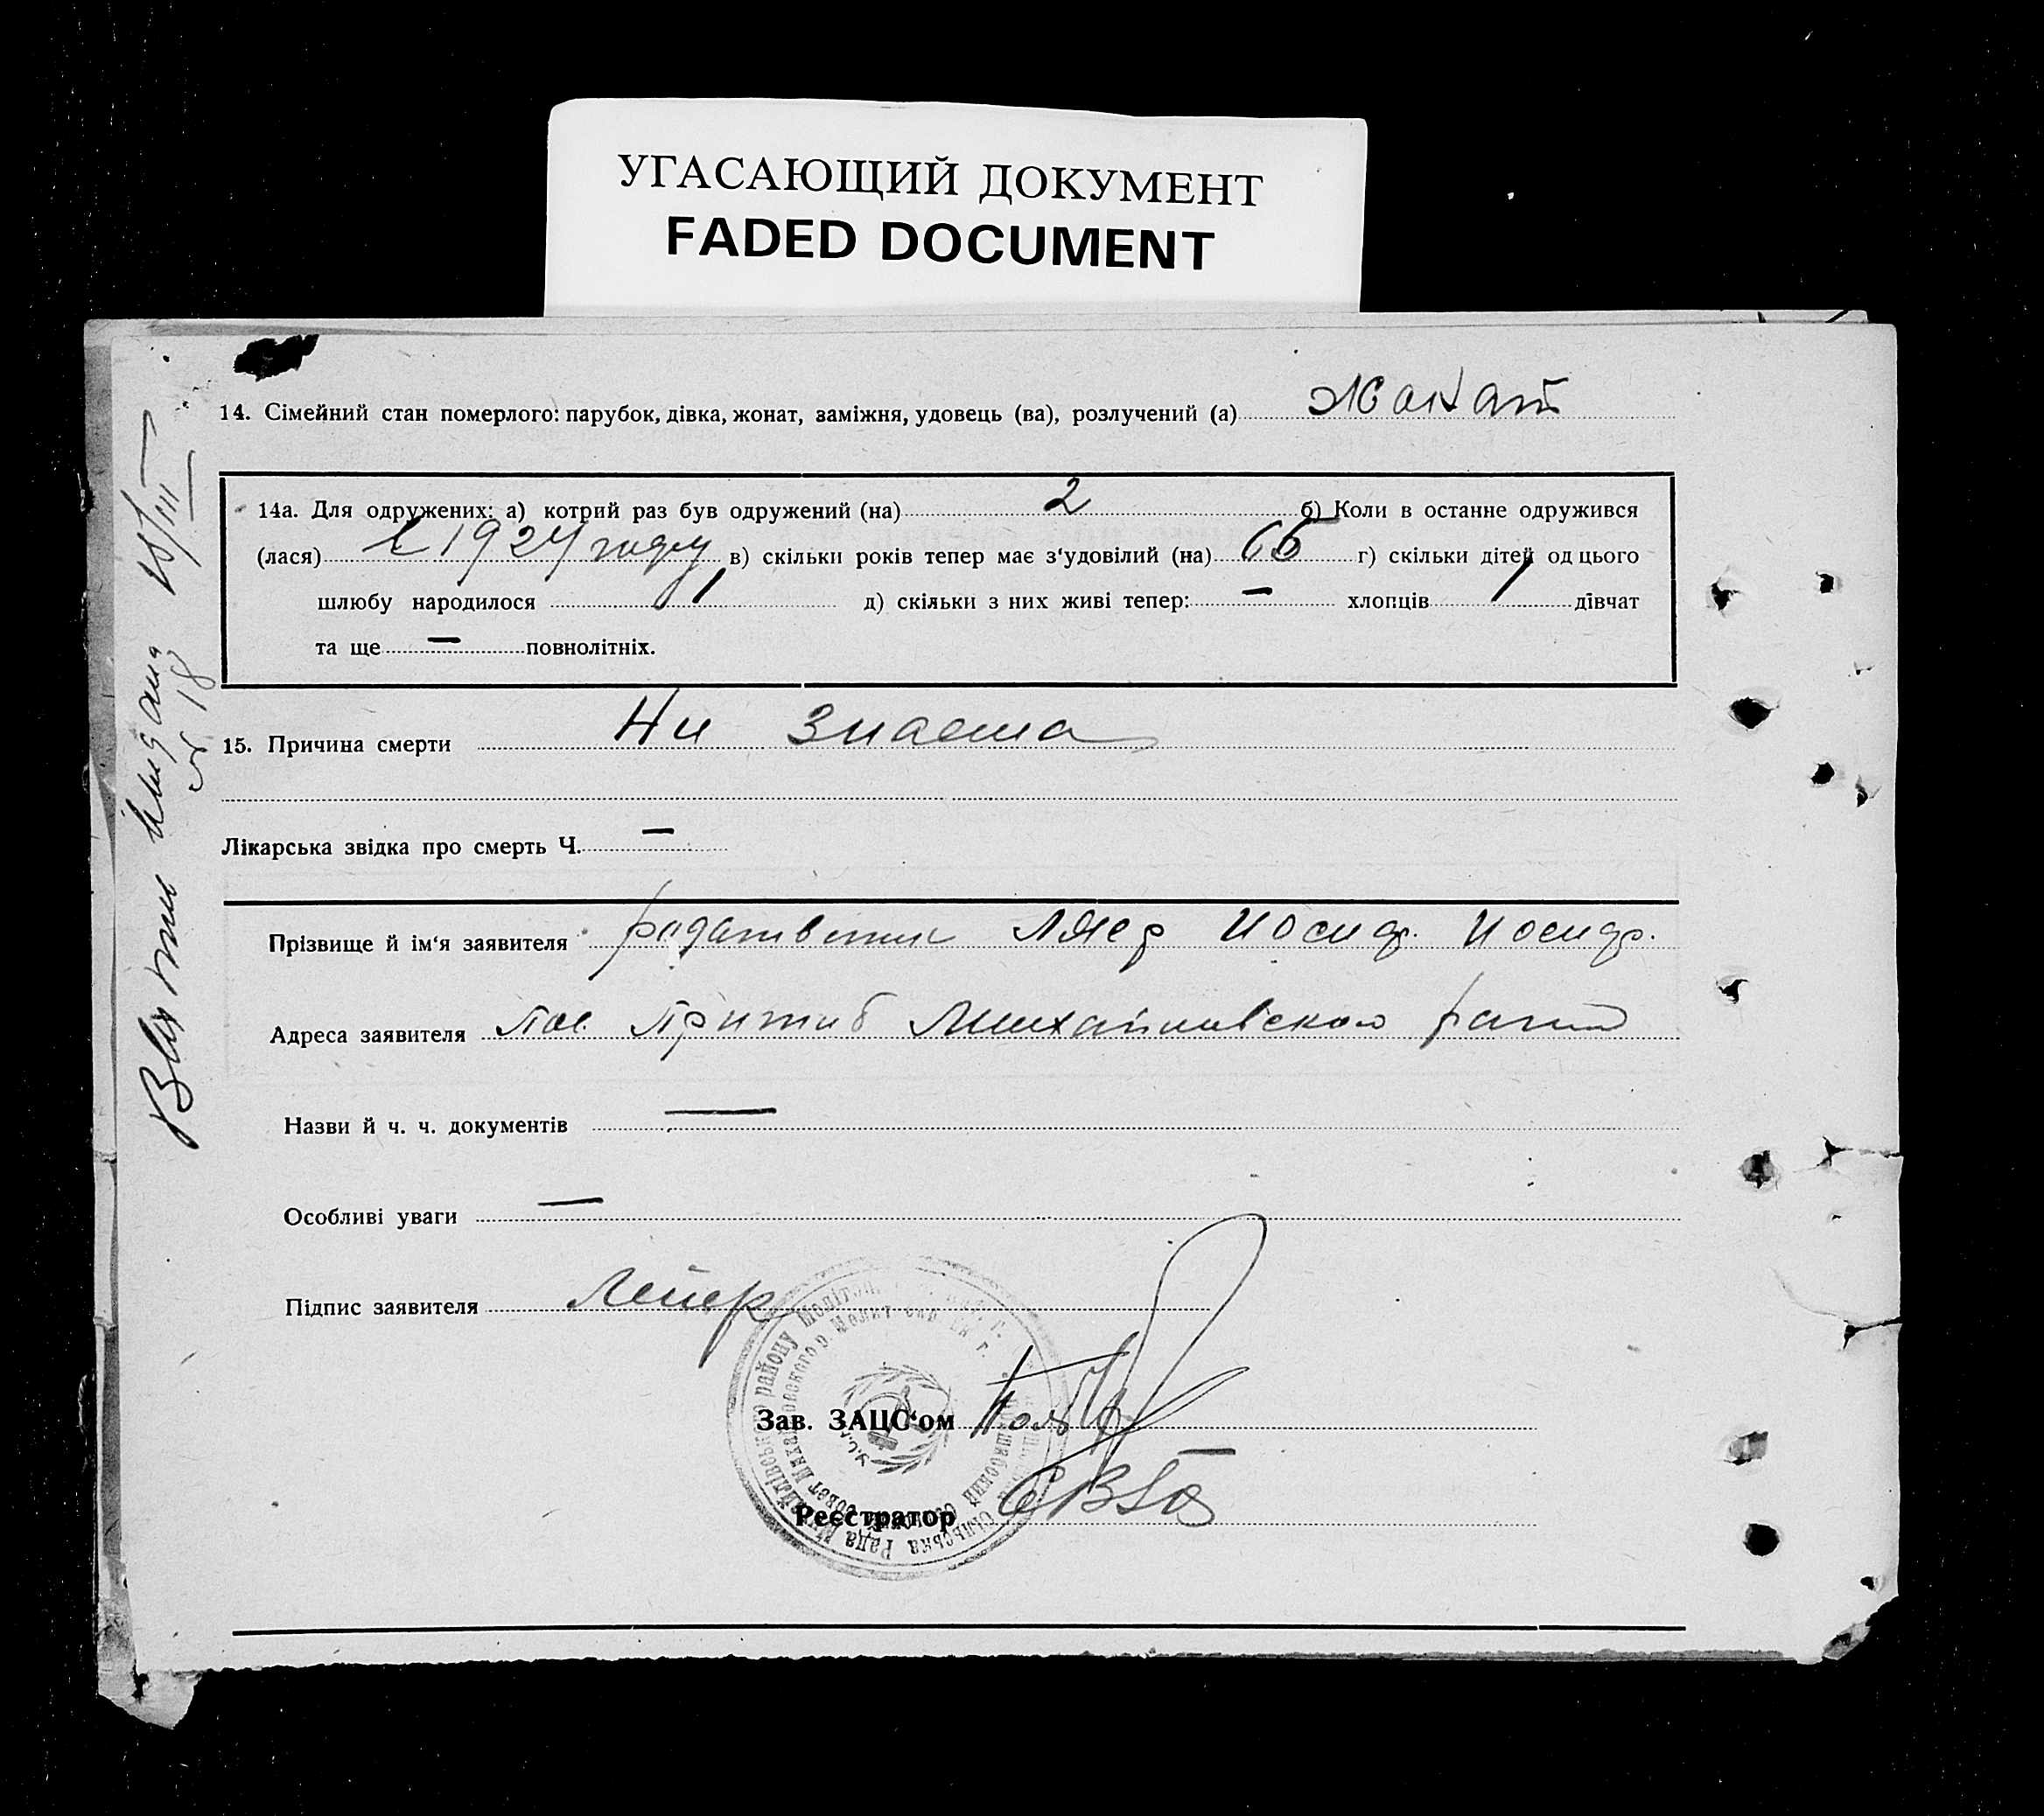 УГАСАЮЩИЙ ДОКУМЕНТ
FADED DOCUMENT
14. Сімейний стан померлого: парубок, дівка, жонат, заміжня, удовець (ва), розлучений (а) Жонат
14а. Для одружених: а) котрий раз був одружений (на) 2 б) Коли в останне одружився
(лася) в 1924 году в) скільки років тепер має з'удовілий (на) 66 г) скільки дітей од цього
шлюбу народилося 1 д) скільки з них живі тепер: — хлопців 1 дівчат
та ще — повнолітніх.
15. Причина смерти Ни знаета
Лікарська звідка про смерть Ч. —
Прізвище й ім'я заявителя Иосиф. Иосиф.
Адреса заявителя пос. Пришиб Михайловского
Назви й ч. ч. документів —
Особливі уваги —
Підпис заявителя Лейер
Зав. ЗАЦС'ом
Реєстратор
18/III
№ 18